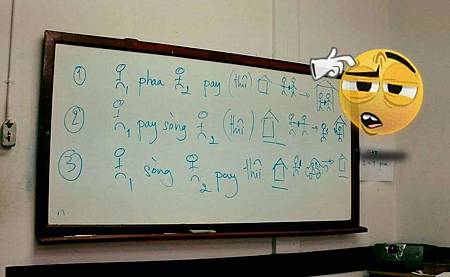 ① 1 phaa 2 pay (thîi)
② 1 pay sòng 2 (thîi)
③ 1 sòng 2 pay thîi